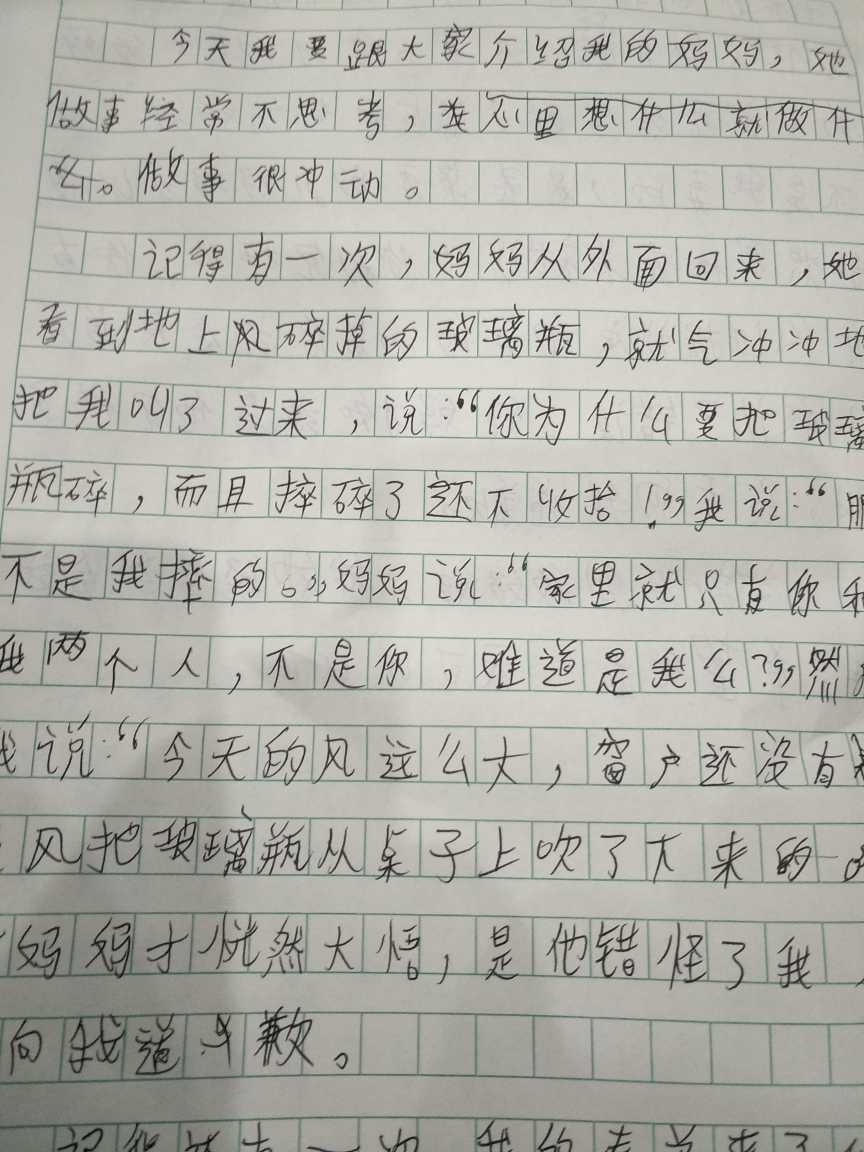 今天我要跟大家介绍我的妈妈，她
做事经常不思考，在心里想什么就做什
么。做事很冲动。
记得有一次，妈妈从外面回来，她
看到地上风碎掉的玻璃瓶，就气冲冲地
把我叫了过来，说：“你为什么要把玻璃
瓶碎，而且摔碎了还不收拾！”我说：“
不是我摔的。”妈妈说：“家里就只有你和
我两个人，不是你，难道是我么？”然
我说：“今天的风这么大，窗户还没有
风把玻璃瓶从桌子上吹了下来的
妈妈才恍然大悟，是他错怪了我，
向我道歉。
记得 有一次 我的